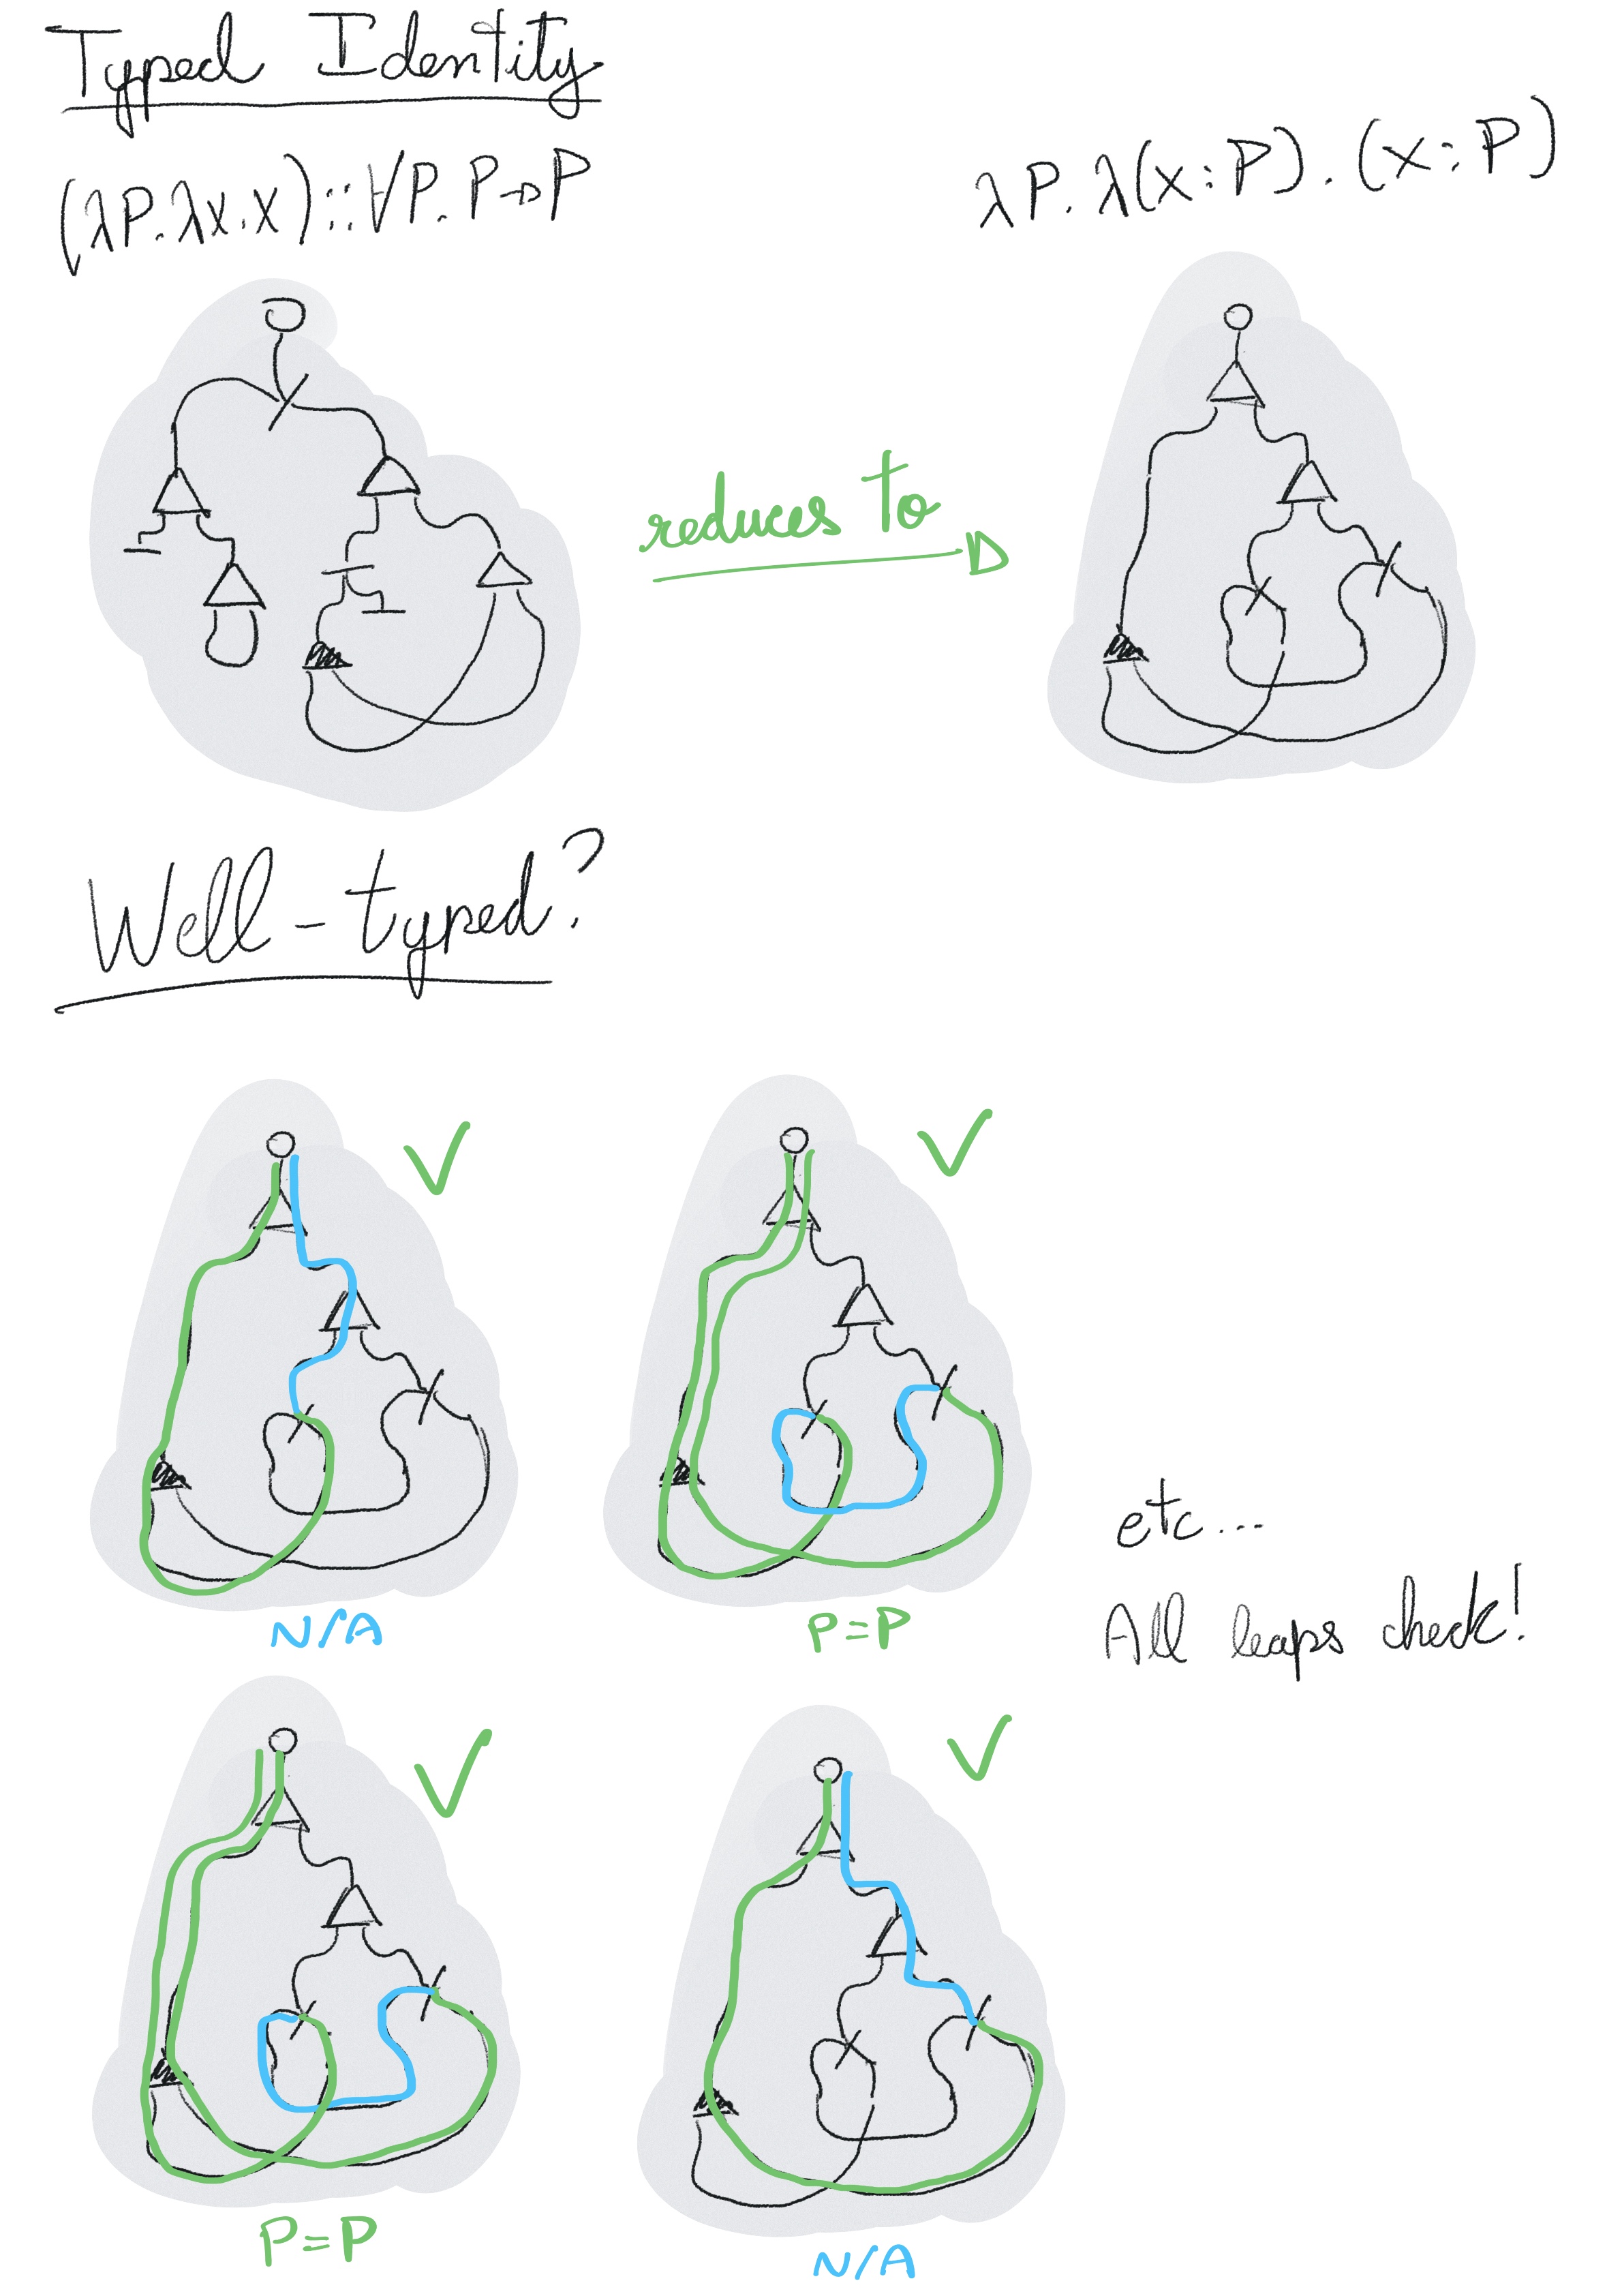 Typed Identity
(λP.λx.x)::∀P.P→P
λP.λ(x:P).(x:P)
reduces to
Well-typed?
N/A
P=P
etc...
All leaps check!
P=P
N/A